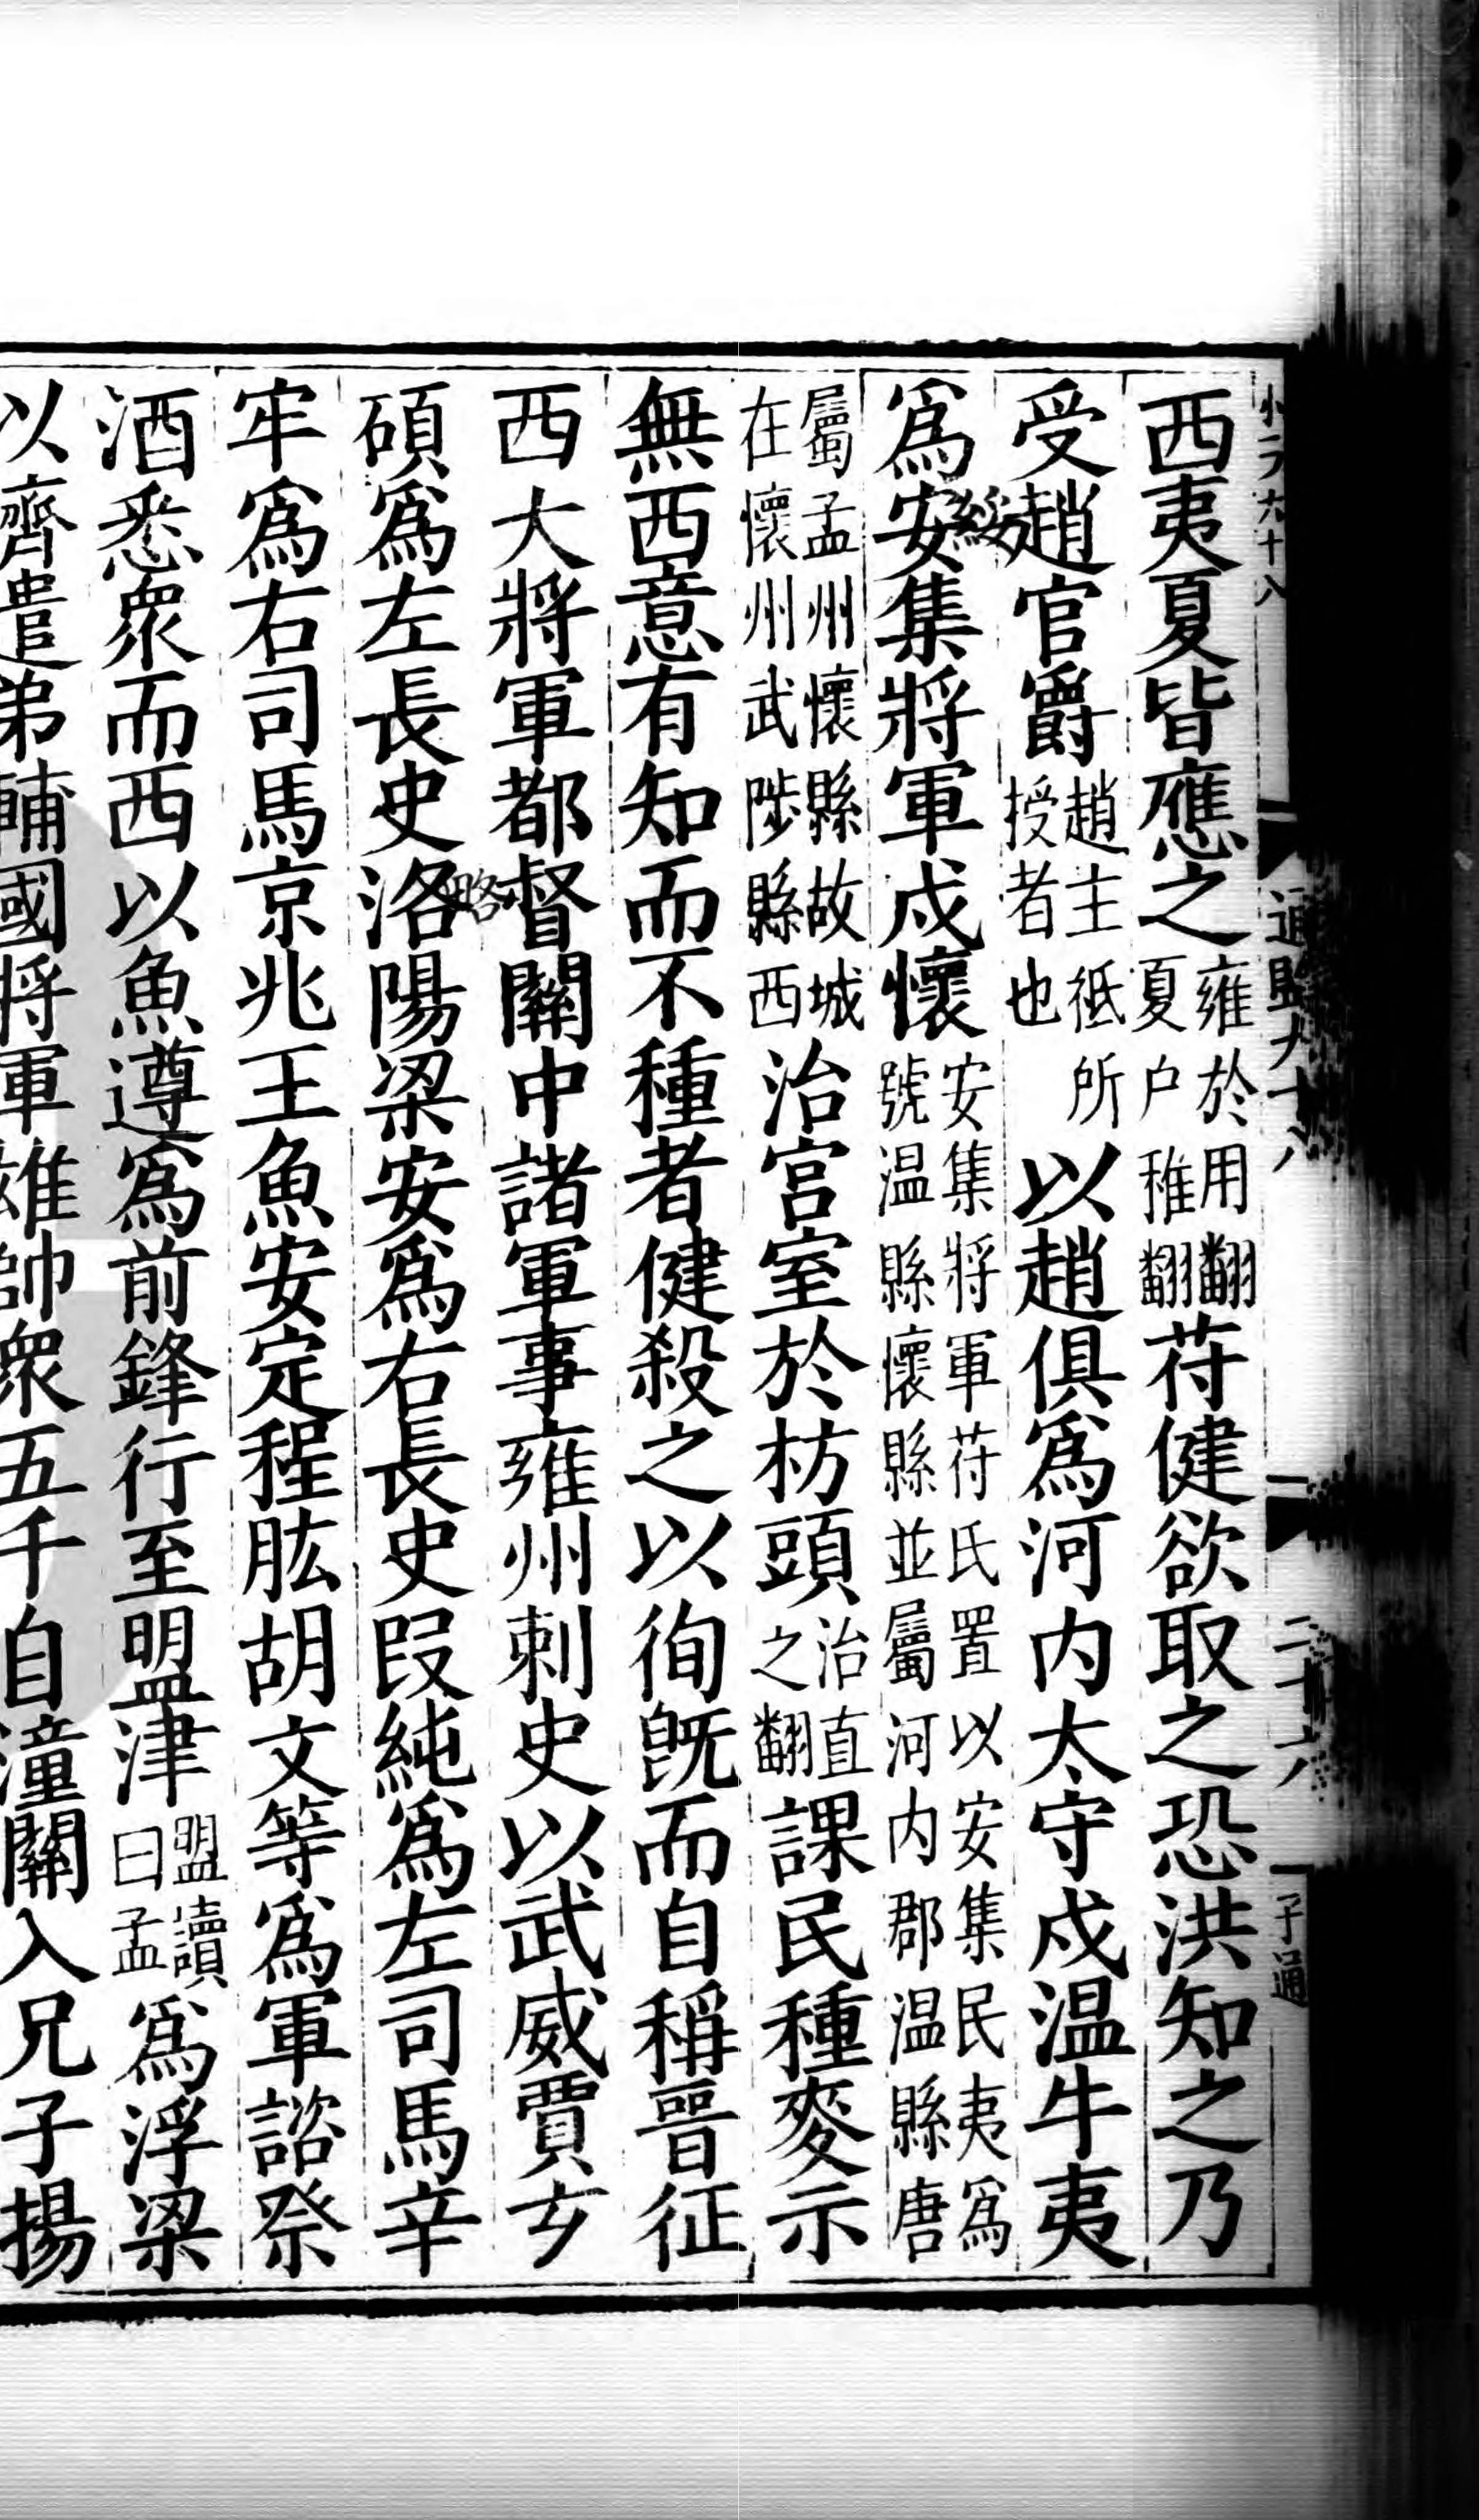 西夷夏皆應之雍於用翻夏户稚翻苻健欲取之恐洪知之乃
受趙官爵趙主祗所授者也以趙俱爲河内太守戍温牛夷
爲安集將軍戍懷安集將軍苻氏置以安集民夷爲號温縣懷縣並屬河内郡温縣唐
綏
屬孟州懷縣故城在懷州武陟縣西治宫室於枋頭治直之翻課民種麥示
無西意有知而不種者健殺之以徇旣而自稱晉征
西大將軍都督關中諸軍事雍州刺史以武威賈玄
略
碩爲左長史洛陽梁安爲右長史段純爲左司馬辛
牢爲右司馬京兆王魚安定程肱胡文等爲軍諮祭
酒悉衆而西以魚遵爲前鋒行至盟津盟讀曰孟爲浮梁
以濟遣弟輔國將軍雄帥衆五千自潼關入兄子揚
通鑑九十八
二十六
子通